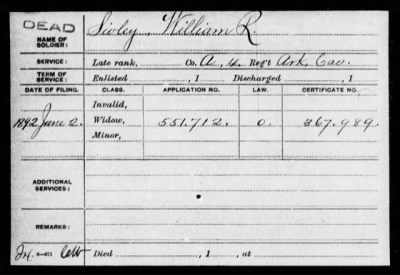 DEAD
NAME OF SOLDIER: Sivley, William R.
SERVICE: Late rank, Co. A, 4 Reg't Ark Cav.
TERM OF SERVICE: Enlisted , 1 Discharged , 1
DATE OF FILING. CLASS. APPLICATION NO. LAW. CERTIFICATE NO.
Invalid,
1892 June 2. Widow, 551.712. O. 367.989.
Minor,
ADDITIONAL SERVICES:
REMARKS:
Died , 1 , at